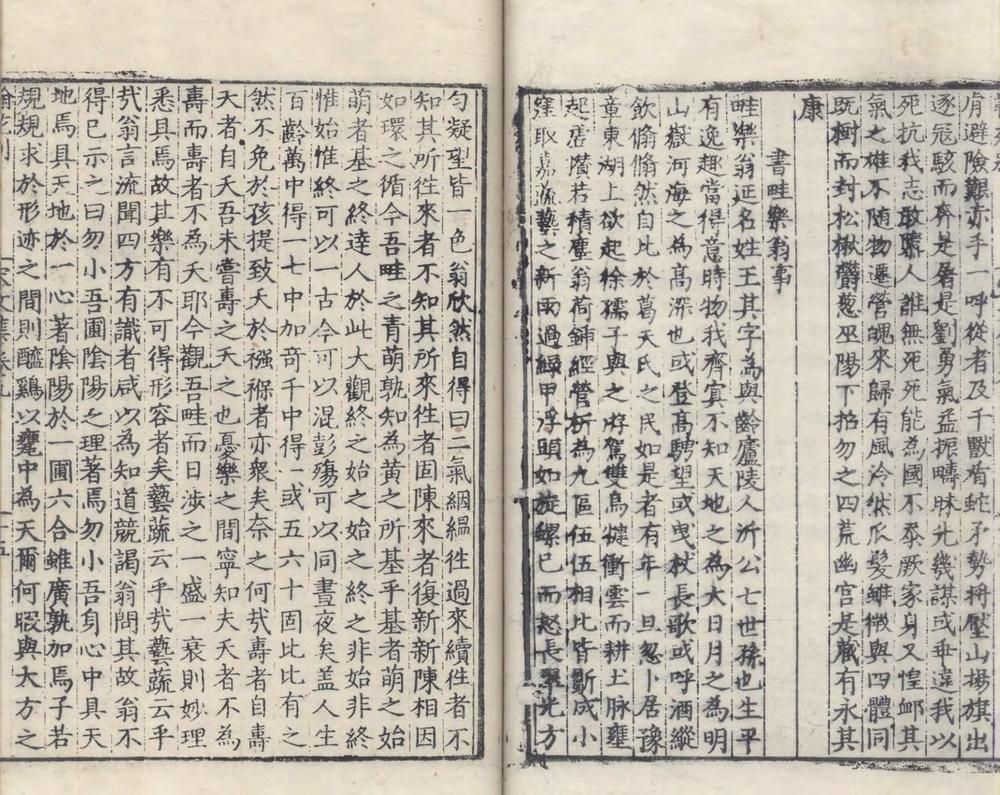 肯避險艱亦手一呼從者及千獸盾蛇矛勢將壓山揚旗出
逐寇駭而奔是屠是劉勇氣益振疇昧先幾謀或乖違我以
死抗我志敢隳人誰無死死能為國不忝厥家身又惶卹其
氣之雄不隨物遷營魄來歸有風泠然爪髮雖微與四體同
既樹而封松楸欝葱巫陽下招勿之四荒幽宮是藏有永其
康
書畦樂翁事
畦樂翁延名姓王其字爲與齡廬陵人沂公七世孫也生平
有逸趣當得意時物我齊寘不知天地之為大日月之為明
山嶽河海之為高深也或登髙騁望或曳杖長歌或呼酒縱
飲翛翛然自比於葛天氏之民如是者有年一旦忽卜居豫
章東湖上欲起徐孺子與之游駕雙烏犍衝雲而耕土脉壅
起若積塵翁荷鍤經營析為九區伍伍相比皆斸成小
窪取嘉蔬藝之新雨過綠甲浮頭如旋螺已而怒長翠光方
勻凝望皆一色翁欣然自得曰二氣絪縕徃過來續徃者不
知其所徃來者不知其所來徃者固陳來者復新新陳相因
如環之循今吾畦之青萌孰知為黄之所基乎基者萌之始
萌者基之終達人於此大觀終之始之始之終之非始非終
惟始惟終可以一古今可以混彭殤可以同晝夜矣盖人生
百齡萬中得一七中加竒千中得一或五六十固比比有之
然不免於孩提致夭於襁褓者亦衆矣奈之何㢤壽者自壽
夭者自夭吾未嘗壽之夭之也憂樂之間寧知夫夭者不為
壽而壽者不為夭耶今觀吾畦而日渉之一盛一衰則妙理
悉具焉故其樂有不可得形容者矣藝蔬云乎㢤藝蔬云乎
㢤翁言流聞四方有識者咸以為知道競謁翁問其故翁不
得已示之曰勿小吾圃陰陽之理著焉勿小吾身心中具天
地焉具天地於一心著陰陽於一圃六合雖廣孰加焉子若
規規求於形迹之間則醯鷄以甕中為天爾何暇與大方之